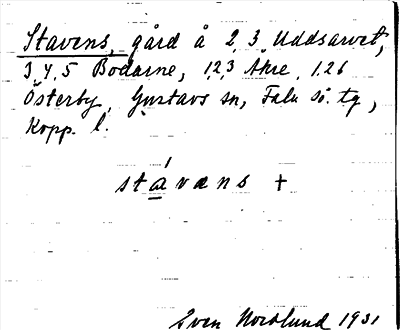 Stavens, gård å 2, 3 Uddsarvet,
3, 4, 5 Bodarne, 1, 2, 3 Åkre, 1, 26
Österby, Gustavs sn, Falu sö. tg,
Kopp. l.
stávans +
Sven Nordlund 1931